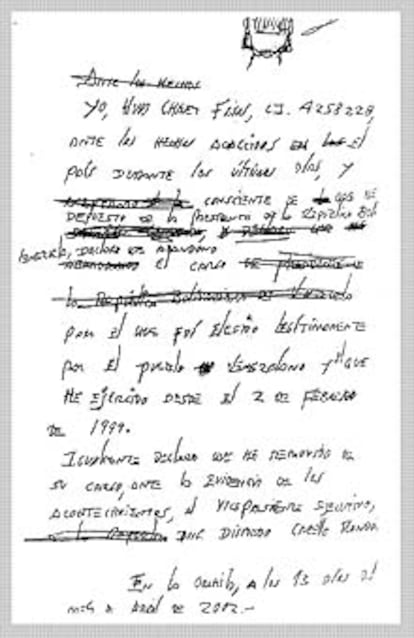 Ante los hechos
Yo, Hugo Chávez Frías, C.I. 4258228,
ante los hechos acaecidos en el
país durante los últimos días, y
consciente de que he
depuesto de la Presidencia de la República Boli
variana, declaro que abandono
el cargo de Presidente de
la República Bolivariana de Venezuela
para el que fui electo legítimamente
por el pueblo venezolano y el que
he ejercido desde el 2 de febrero
de 1999.
Igualmente declaro que he removido de
su cargo, ante la evidencia de los
acontecimientos, al Vicepresidente Ejecutivo,
Diosdado Cabello Rondón
En la Orchila, a los 13 días del
mes de abril de 2002.-